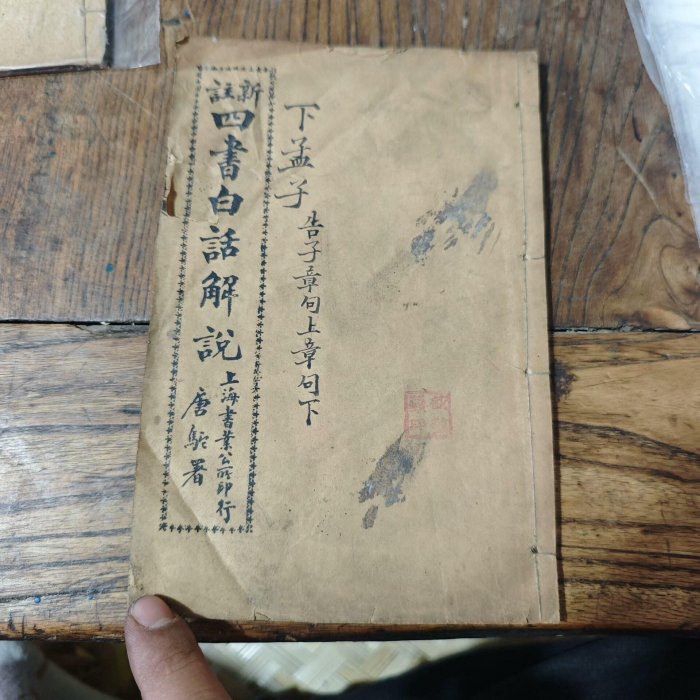 下孟子
告子章句上章句下
新註
四書白話解說
上海書業公所印行
唐駝署